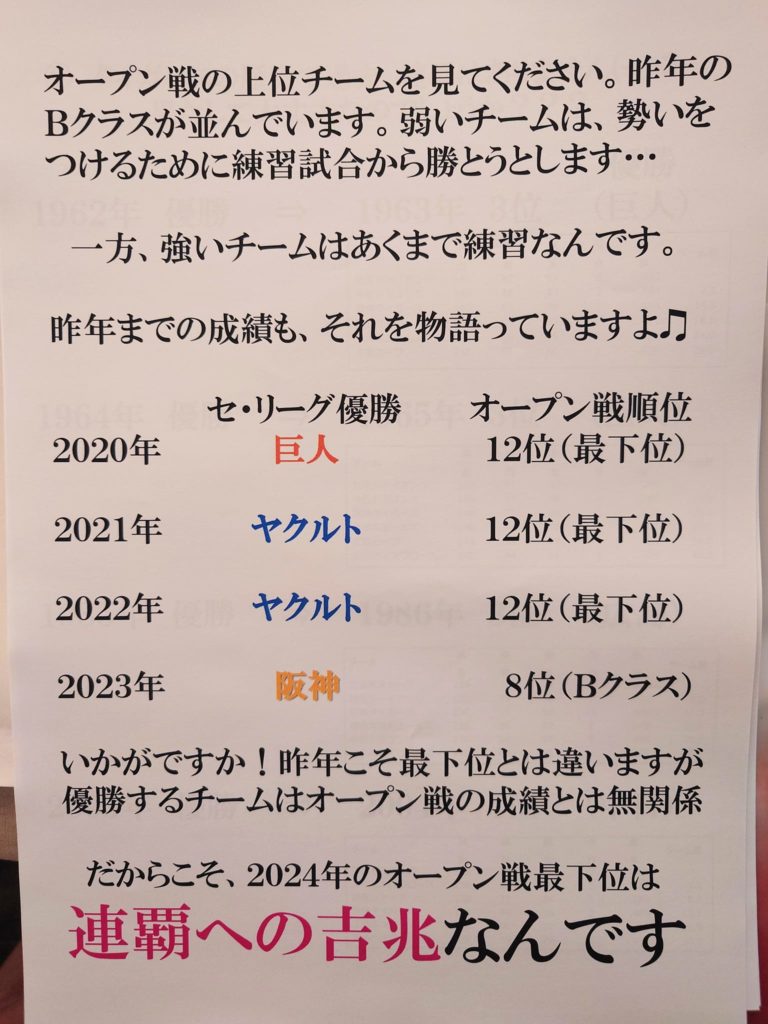 オープン戦の上位チームを見てください。昨年の
Bクラスが並んでいます。弱いチームは、勢いを
つけるために練習試合から勝とうとします…
一方、強いチームはあくまで練習なんです。
昨年までの成績も、それを物語っていますよ♫
セ・リーグ優勝 オープン戦順位
2020年 巨人 12位（最下位）
2021年 ヤクルト 12位（最下位）
2022年 ヤクルト 12位（最下位）
2023年 阪神 8位（Bクラス）
いかがですか！昨年こそ最下位とは違いますが
優勝するチームはオープン戦の成績とは無関係
だからこそ、2024年のオープン戦最下位は
連覇への吉兆なんです